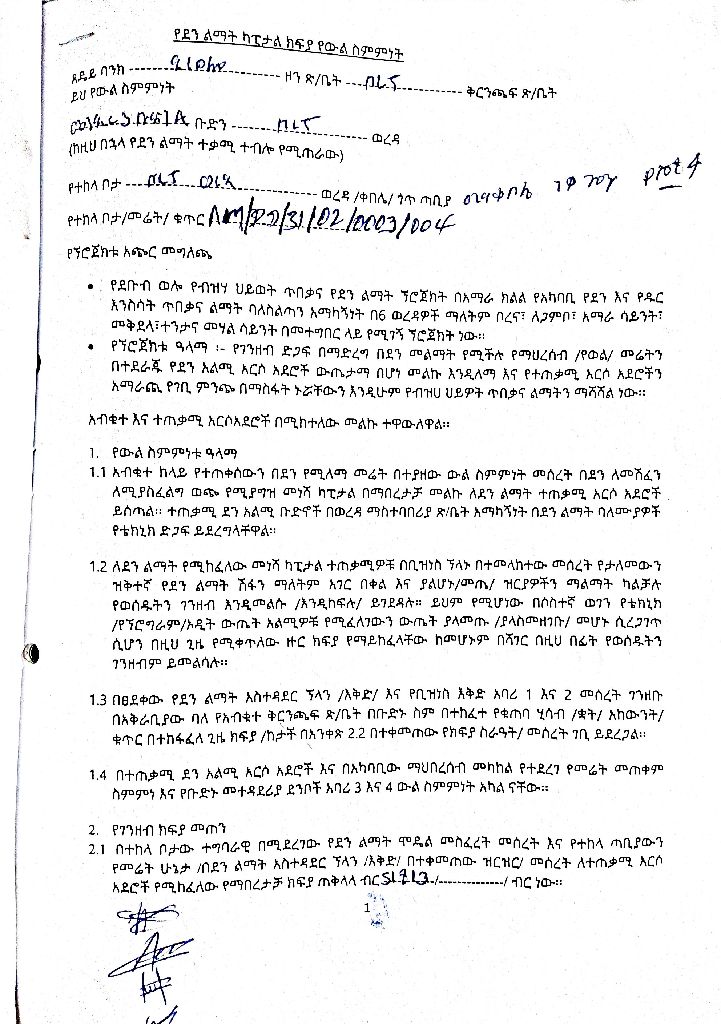 የደን ልማት ካፒታል ክፍያ የውል ስምምነት
ጸደይ ባንክ ---------------- ዞን ጽ/ቤት ---------------- ቅርንጫፍ ጽ/ቤት
ይህ የውል ስምምነት
ቡድን ---------------- ወረዳ
(ከዚህ በኋላ የደን ልማት ተቃሚ ተብሎ የሚጠራው)
የተከላ ቦታ ---------------- ወረዳ /ቀበሌ/ ጎጥ ጣቢያ plot 4
የተከላ ቦታ/መሬት/ ቁጥር /31/02/0003/004
የኘሮጀክቱ አጭር መግለጫ
• የደቡብ ወሎ የብዝሃ ህይወት ጥበቃና የደን ልማት ኘሮጀክት በአማራ ክልል የአካባቢ የደን እና የዱር
እንስሳት ጥበቃና ልማት ባለስልጣን አማካኝነት በ6 ወረዳዎች ማለትም ቦረና፣ ለጋምቦ፣ አማራ ሳይንት፣
መቅደላ፣ተንታና መሃል ሳይንት በመተግበር ላይ የሚገኝ ኘሮጀክት ነው።
• የኘሮጀክቱ ዓላማ ፡- የገንዘብ ድጋፍ በማድረግ በደን መልማት የሚችሉ የማህረሰብ /የወል/ መሬትን
በተደራጁ የደን አልሚ አርሶ አደሮች ውጤታማ በሆነ መልኩ እንዲለማ እና የተጠቃሚ አርሶ አደሮችን
አማራጪ የገቢ ምንጭ በማስፋት ኑሯቸውን እንዲሁም የብዝሀ ህይዎት ጥበቃና ልማትን ማሻሻል ነው።
አብቁተ እና ተጠቃሚ አርሶአደሮች በሚከተለው መልኩ ተዋውለዋል።
1. የውል ስምምነቱ ዓላማ
1.1 አብቁተ ከላይ የተጠቀሰውን በደን የሚለማ መሬት በተያዘው ውል ስምምነት መሰረት በደን ለመሸፈን
ለሚያስፈልግ ወጭ የሚያግዝ መነሻ ካፒታል በማበረታቻ መልኩ ለደን ልማት ተጠቃሚ አርሶ አደሮች
ይሰጣል። ተጠቃሚ ደን አልሚ ቡድኖች በወረዳ ማስተባበሪያ ጽ/ቤት አማካኝነት በደን ልማት ባለሙያዎች
የቴክኒክ ድጋፍ ይደረግላቸዋል።
1.2 ለደን ልማት የሚከፈለው መነሻ ካፒታል ተጠቃሚዎቹ በቢዝነስ ኘላኑ በተመላከተው መሰረት የታለመውን
ዝቅተኛ የደን ልማት ሽፋን ማለትም አገር በቀል እና ያልሆኑ/መጤ/ ዝርያዎችን ማልማት ካልቻሉ
የወሰዱትን ገንዘብ እንዲመልሱ /እንዲከፍሉ/ ይገደዳሉ። ይህም የሚሆነው በሶስተኛ ወገን የቴክኒክ
/የኘሮግራም/ኦዲት ውጤት አልሚዎቹ የሚፈለገውን ውጤት ያላመጡ /ያላስመዘገቡ/ መሆኑ ሲረጋገጥ
ሲሆን በዚህ ጊዜ የሚቀጥለው ዙር ክፍያ የማይከፈላቸው ከመሆኑም በሻገር በዚህ በፊት የወሰዱትን
ገንዘብም ይመልሳሉ።
1.3 በፀደቀው የደን ልማት አስተዳደር ኘላን /እቅድ/ እና የቢዝነስ እቅድ አባሪ 1 እና 2 መሰረት ገንዘቡ
በአቅራቢያው ባለ የአብቁተ ቅርንጫፍ ጽ/ቤት በቡድኑ ስም በተከፈተ የቁጠባ ሂሳብ /ቋት/ አካውንት/
ቁጥር በተከፋፈለ ጊዜ ክፍያ /ከታች በአንቀጽ 2.2 በተቀመጠው የክፍያ ስራዓት/ መሰረት ገቢ ይደረጋል።
1.4 በተጠቃሚ ደን አልሚ አርሶ አደሮች እና በአካባቢው ማህበረሰብ መካከል የተደረገ የመሬት መጠቀም
ስምምነ እና የቡድኑ መተዳደሪያ ደንቦች አባሪ 3 እና 4 ውል ስምምነት አካል ናቸው።
2. የገንዘብ ክፍያ መጠን
2.1 በተከላ ቦታው ተግባራዊ በሚደረገው የደን ልማት ሞዴል መስፈረት መሰረት እና የተከላ ጣቢያውን
የመሬት ሁኔታ /በደን ልማት አስተዳደር ኘላን /እቅድ/ በተቀመጠው ዝርዝር/ መሰረት ለተጠቃሚ አርሶ
አደሮች የሚከፈለው የማበረታቻ ክፍያ ጠቅላላ ብር 51713 /---------------/ ብር ነው።
1